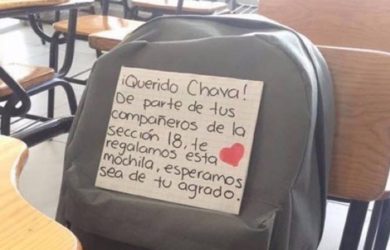 ¡Querido Chava!
De parte de tus
compañeros de la
sección 18, te
regalamos esta
mochila, esperamos
sea de tu agrado.